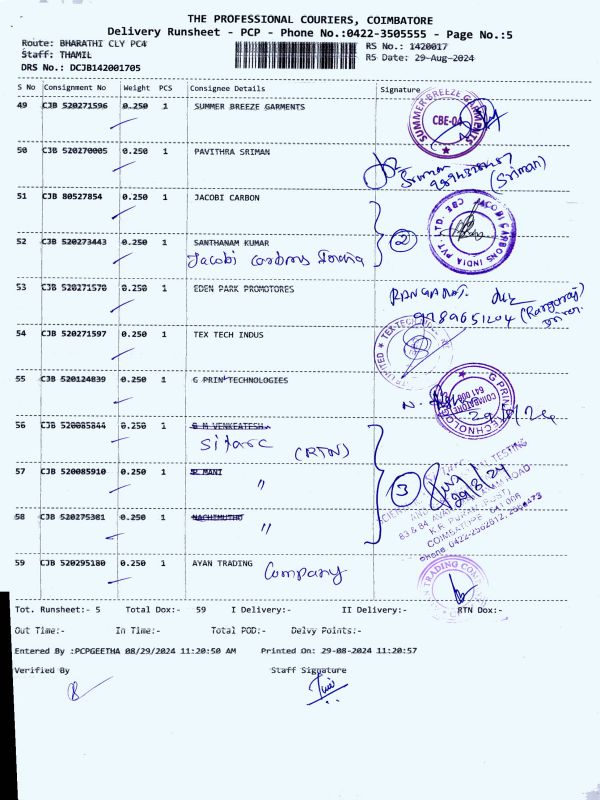 THE PROFESSIONAL COURIERS, COIMBATORE
Delivery Runsheet - PCP - Phone No.:0422-3505555 - Page No.:5
Route: BHARATHI CLY PC4 RS No.: 1420017
Staff: THAMIL RS Date: 29-Aug-2024
DRS No.: DCJB142001705
S No Consignment No Weight PCS Consignee Details Signature
49 CJB 520271596 0.250 1 SUMMER BREEZE GARMENTS
SUMMER BREEZE GARMENTS CBE-04
50 CJB 520270005 0.250 1 PAVITHRA SRIMAN
Sriman
(Sriman)
51 CJB 80527854 0.250 1 JACOBI CARBON
JACOBI CARBONS INDIA PVT. LTD. CBE
52 CJB 520273443 0.250 1 SANTHANAM KUMAR 2
Jacobi carbons India
53 CJB 520271570 0.250 1 EDEN PARK PROMOTORES
9789651204 (Rangaraj)
54 CJB 520271597 0.250 1 TEX TECH INDUS
55 CJB 520124839 0.250 1 G PRIN TECHNOLOGIES
G PRIN TECHNOLOGIES COIMBATORE 641 008
29/8/24
56 CJB 520085844 0.250 1 G M VENKEATESH
Sitarc (RTN)
57 CJB 520085910 0.250 1 R MANI
" 3
29/8/24
TESTING
83 & 84 AVARAMPALAYAM ROAD
K.R. PURAM (POST)
COIMBATORE 641 006
58 CJB 520275381 0.250 1 NACHIMUTHU
"
Phone 0422-2562612, 2560473
59 CJB 520295180 0.250 1 AYAN TRADING
Company
AYAN TRADING COMPANY
Tot. Runsheet:- 5 Total Dox:- 59 I Delivery:- II Delivery:- RTN Dox:-
Out Time:- In Time:- Total POD:- Delvy Points:-
Entered By :PCPGEETHA 08/29/2024 11:20:50 AM Printed On: 29-08-2024 11:20:57
Verified By Staff Signature